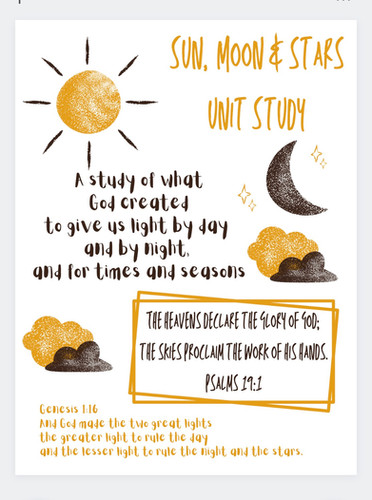 SUN, MOON & STARS
UNIT STUDY
A study of what
God created
to give us light by day
and by night,
and for times and seasons
THE HEAVENS DECLARE THE GLORY OF GOD;
THE SKIES PROCLAIM THE WORK OF HIS HANDS.
PSALMS 19:1
Genesis 1:16
And God made the two great lights
the greater light to rule the day
and the lesser light to rule the night and the stars.